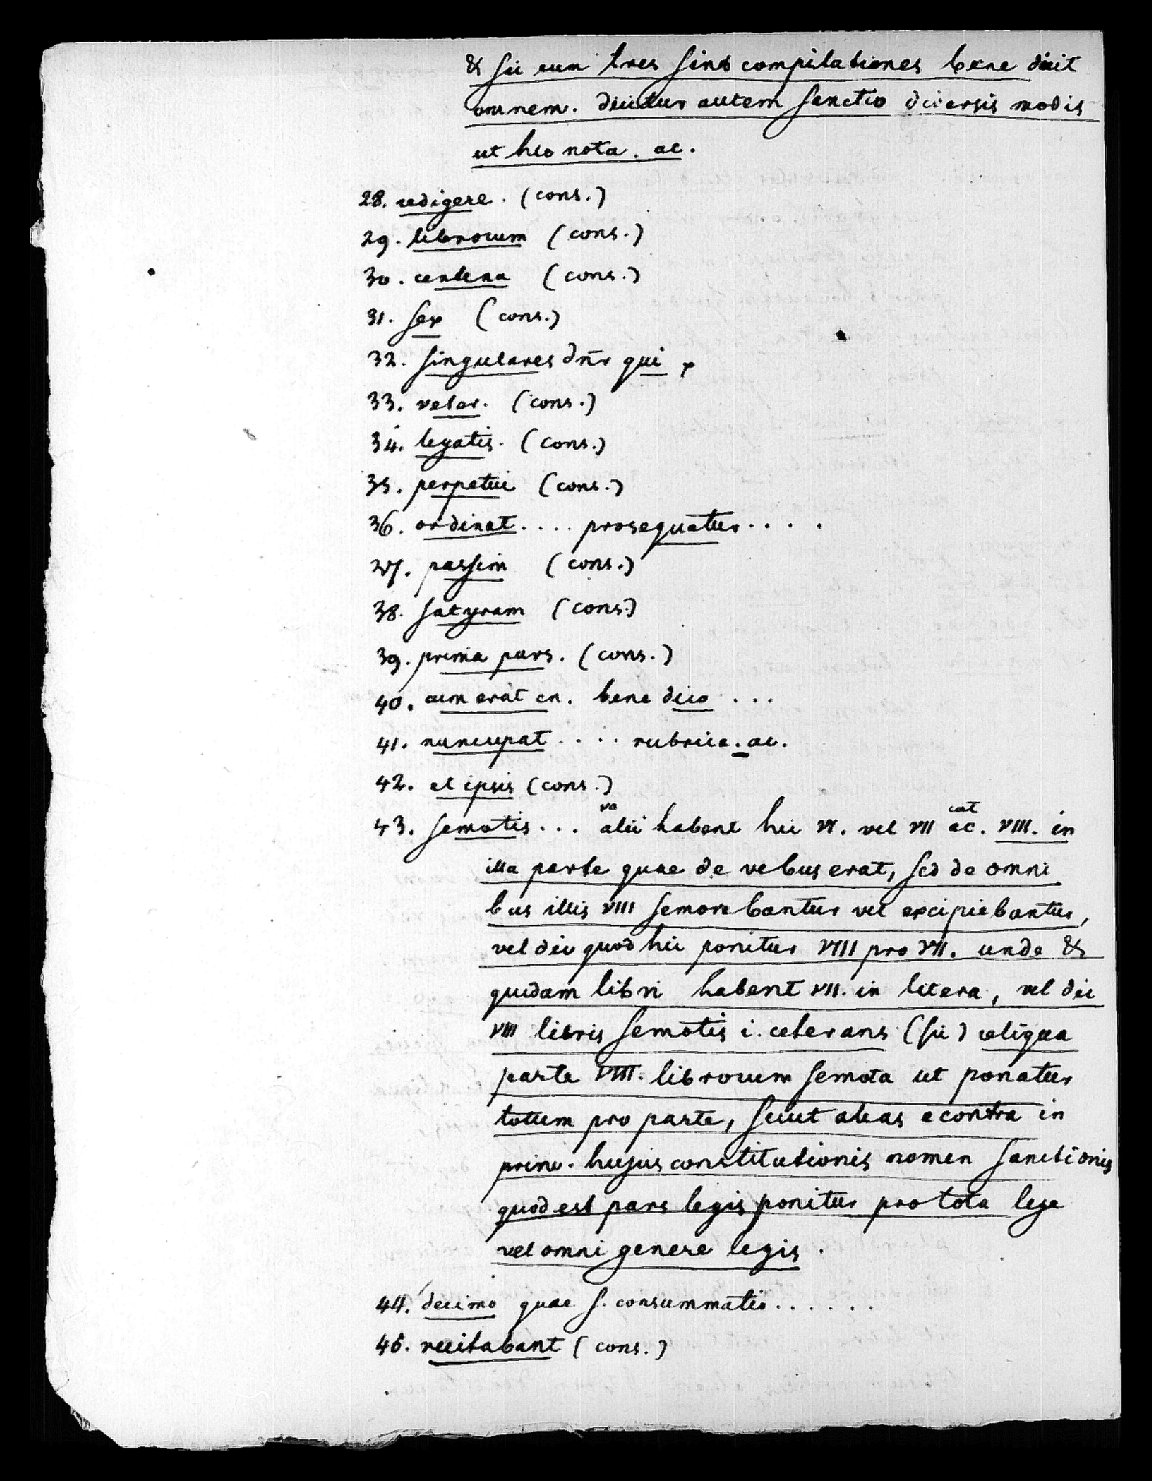 & sic cum tres sint compilationes bene dicit
omnem. dicitur autem sanctio diversis modis
ut hic nota. ac.
28. redigere. (cons.)
29. librorum (cons.)
30. centena (cons.)
31. sex (cons.)
32. singulares dn̄r qui
33. velar. (cons.)
34. legatis. (cons.)
35. perpetui (cons.)
36. ordinat .... prosequatur .....
37. passim (cons.)
38. satyram (cons.)
39. prima pars. (cons.)
40. cum erat en. bene dico ...
41. nuncupat .... rubrica. ac.
42. et ipsis (cons.)
43. semotis ... alii habent hic VI. vel VII ac. VIII. in
illa parte quae de rebus erat, sed de omni
bus illis VIII semovebantur vel excipiebantur,
vel dic quod hic ponitur VIII pro VII. unde &
quidam libri habent VII. in litera, vel dic
VIII libris semotis i. ceterans (sic) reliqua
parte VIII. librorum semota ut ponatur
totum pro parte, sicut alias econtra in
princ. hujus constitutionis nomen sanctionis
quod est pars legis ponitur pro tota lege
vel omni genere legis.
44. decimo quae s. consummatio ......
45. recitabant (cons.)